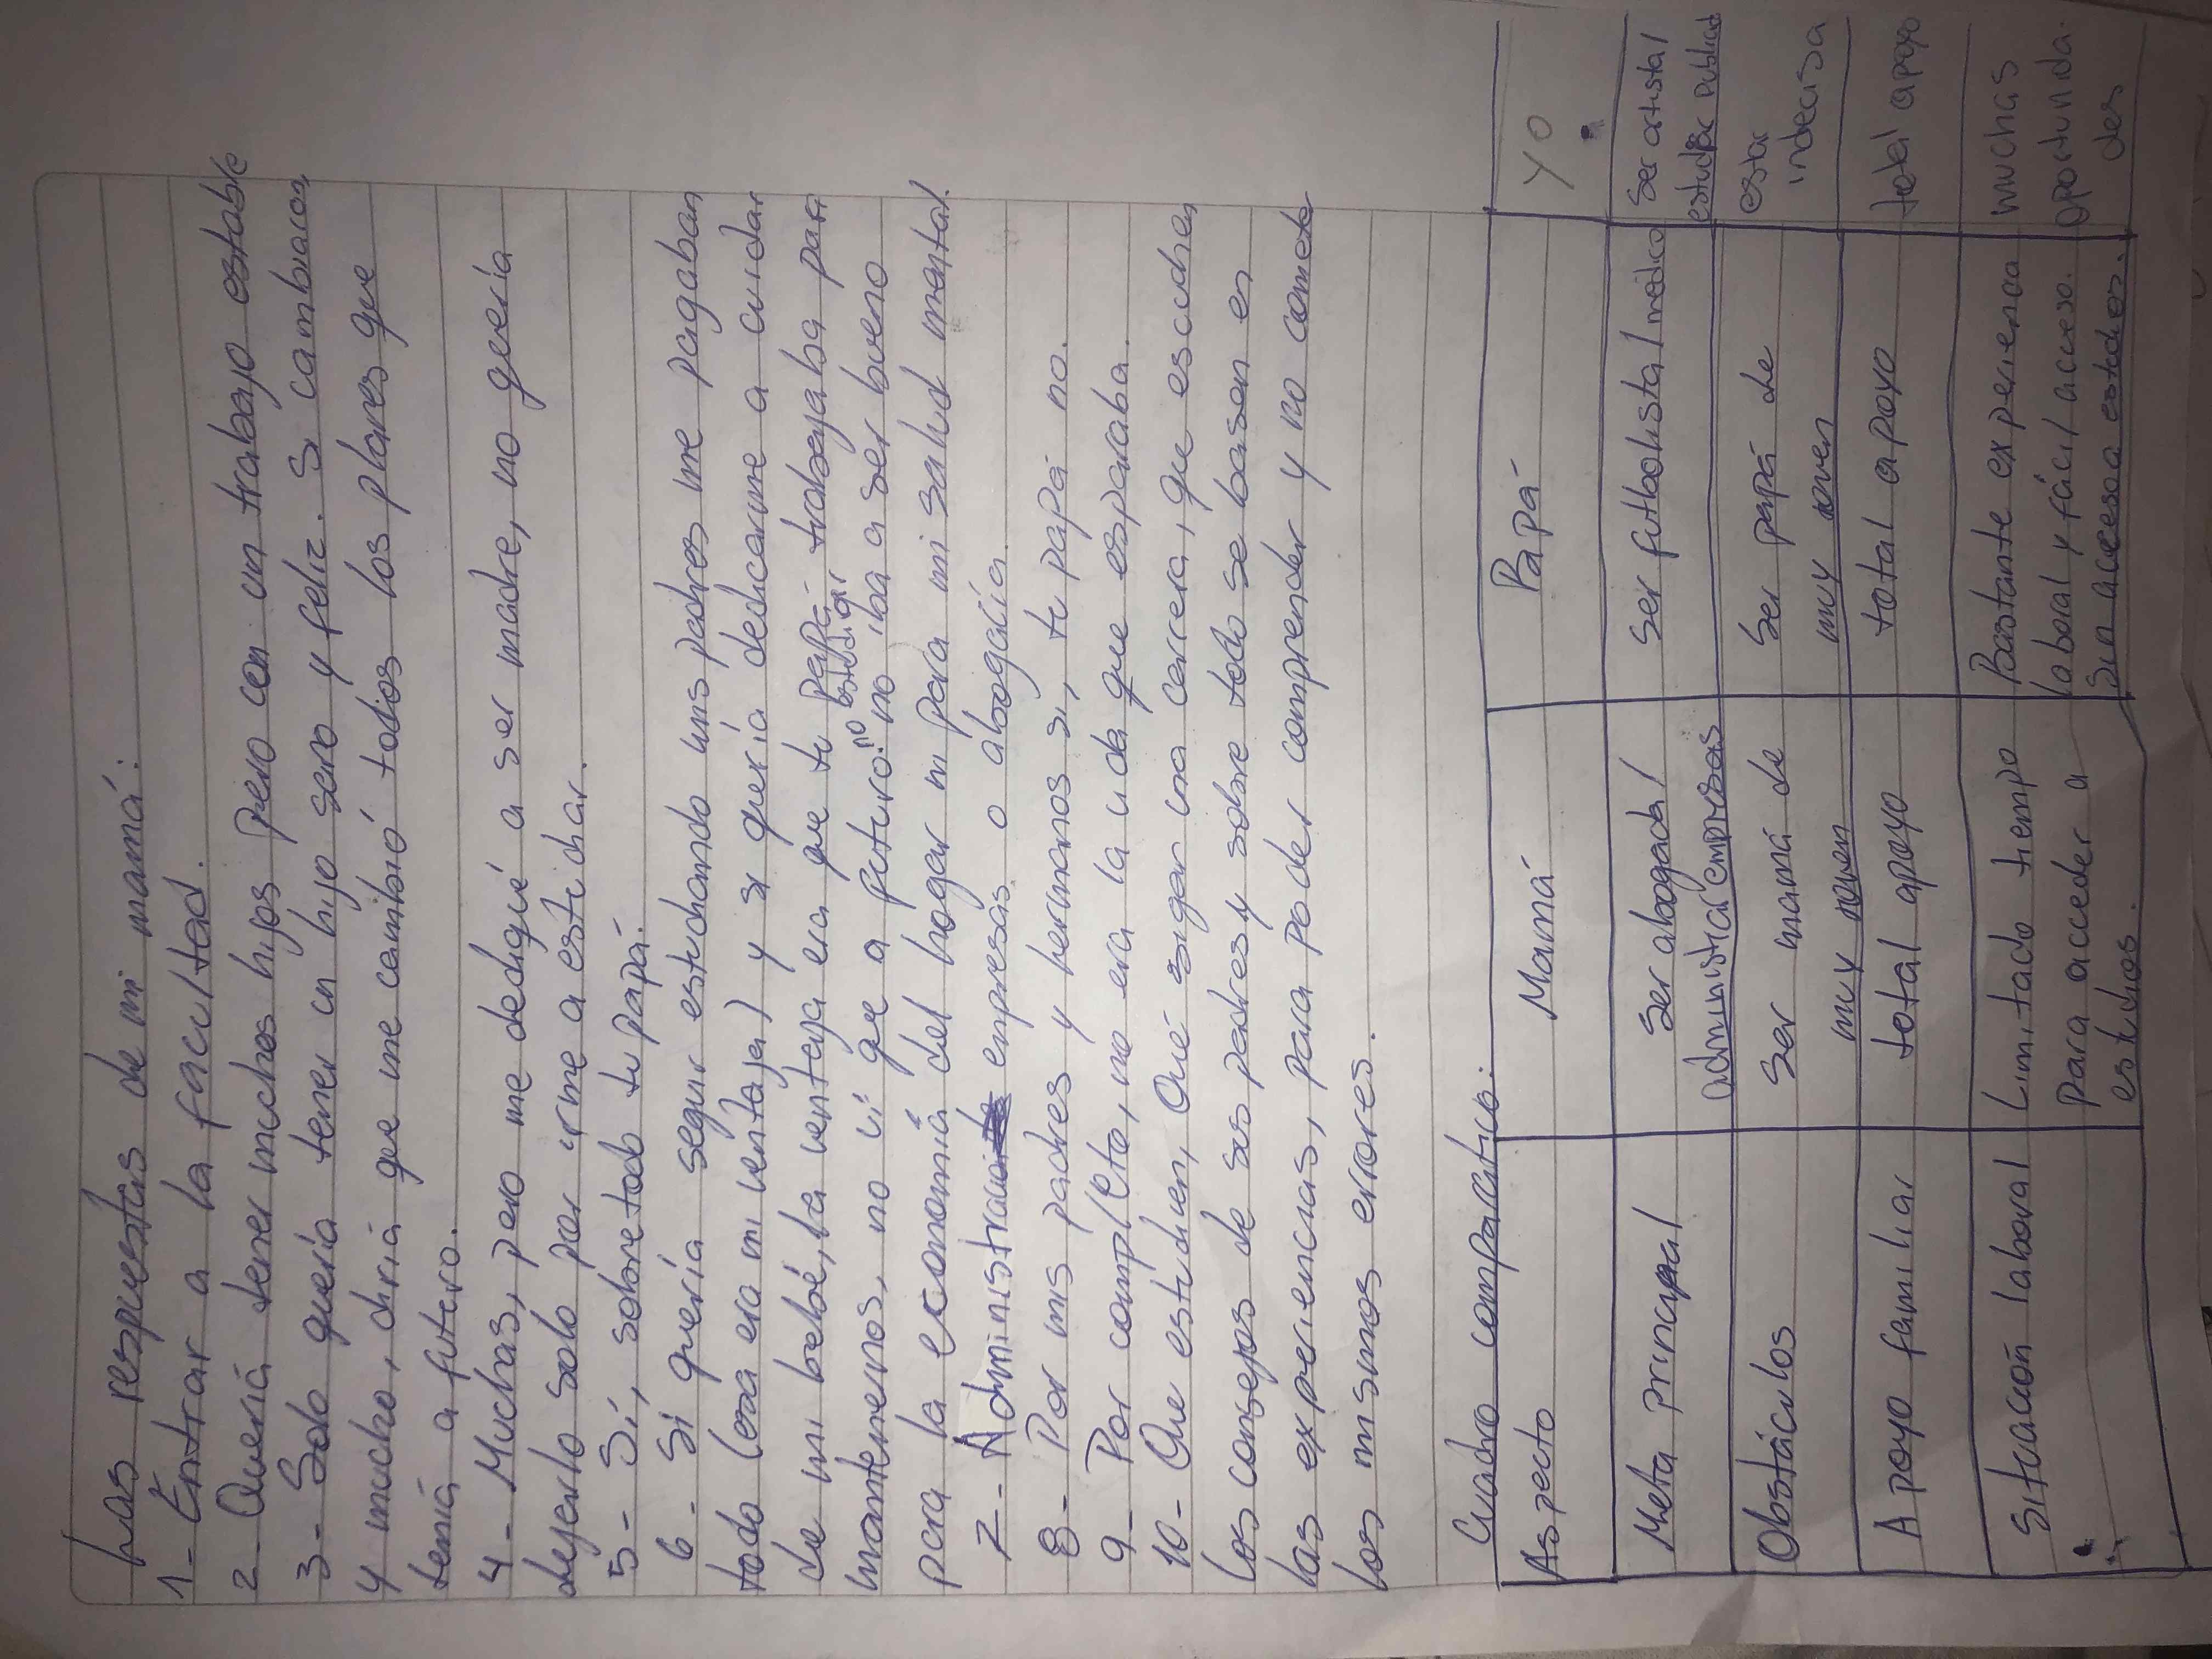 Las respuestas de mi mamá:
1- Entrar a la facultad.
2- Quería tener muchos hijos pero con un trabajo estable
3- Solo quería tener un hijo sano y feliz. Si cambiaron
y mucho, diría que me cambió todos los planes que
tenía a futuro.
4- Muchas, pero me dediqué a ser madre, no quería
dejarlo solo por irme a estudiar.
5- Sí, sobretodo tu papá.
6- Si quería seguir estudiando mis padres me pagaban
todo (esa era mi ventaja) y si quería dedicarme a cuidar
de mi bebé, la ventaja era que tu papá trabajaba para
mantenernos, no vi que a futuro no estudiar no iba a ser bueno
para la economía del hogar ni para mi salud mental.
7- Administrar empresas o abogacía.
8- Por mis padres y hermanos si, tu papá no.
9- Por completo, no era la vida que esparaba.
10- Que estudien, Que sigan una carrera, que escuchen
los consejos de sus padres y sobre todo se basen en
las experiencias, para poder comprender y no cometer
los mismos errores.
Cuadro comparativo:
Aspecto Mamá Papá Yo
Meta principal Ser abogada/ administrar empresas Ser futbolista/médico Ser artista/ estudiar publicidad
Obstáculos Ser mamá de muy joven Ser papá de muy joven estar indecisa
Apoyo familiar total apoyo total apoyo total apoyo
Situación laboral Limitado tiempo para acceder a estudios. Bastante experiencia laboral y fácil acceso. Sin acceso a estudios. muchas oportunidades